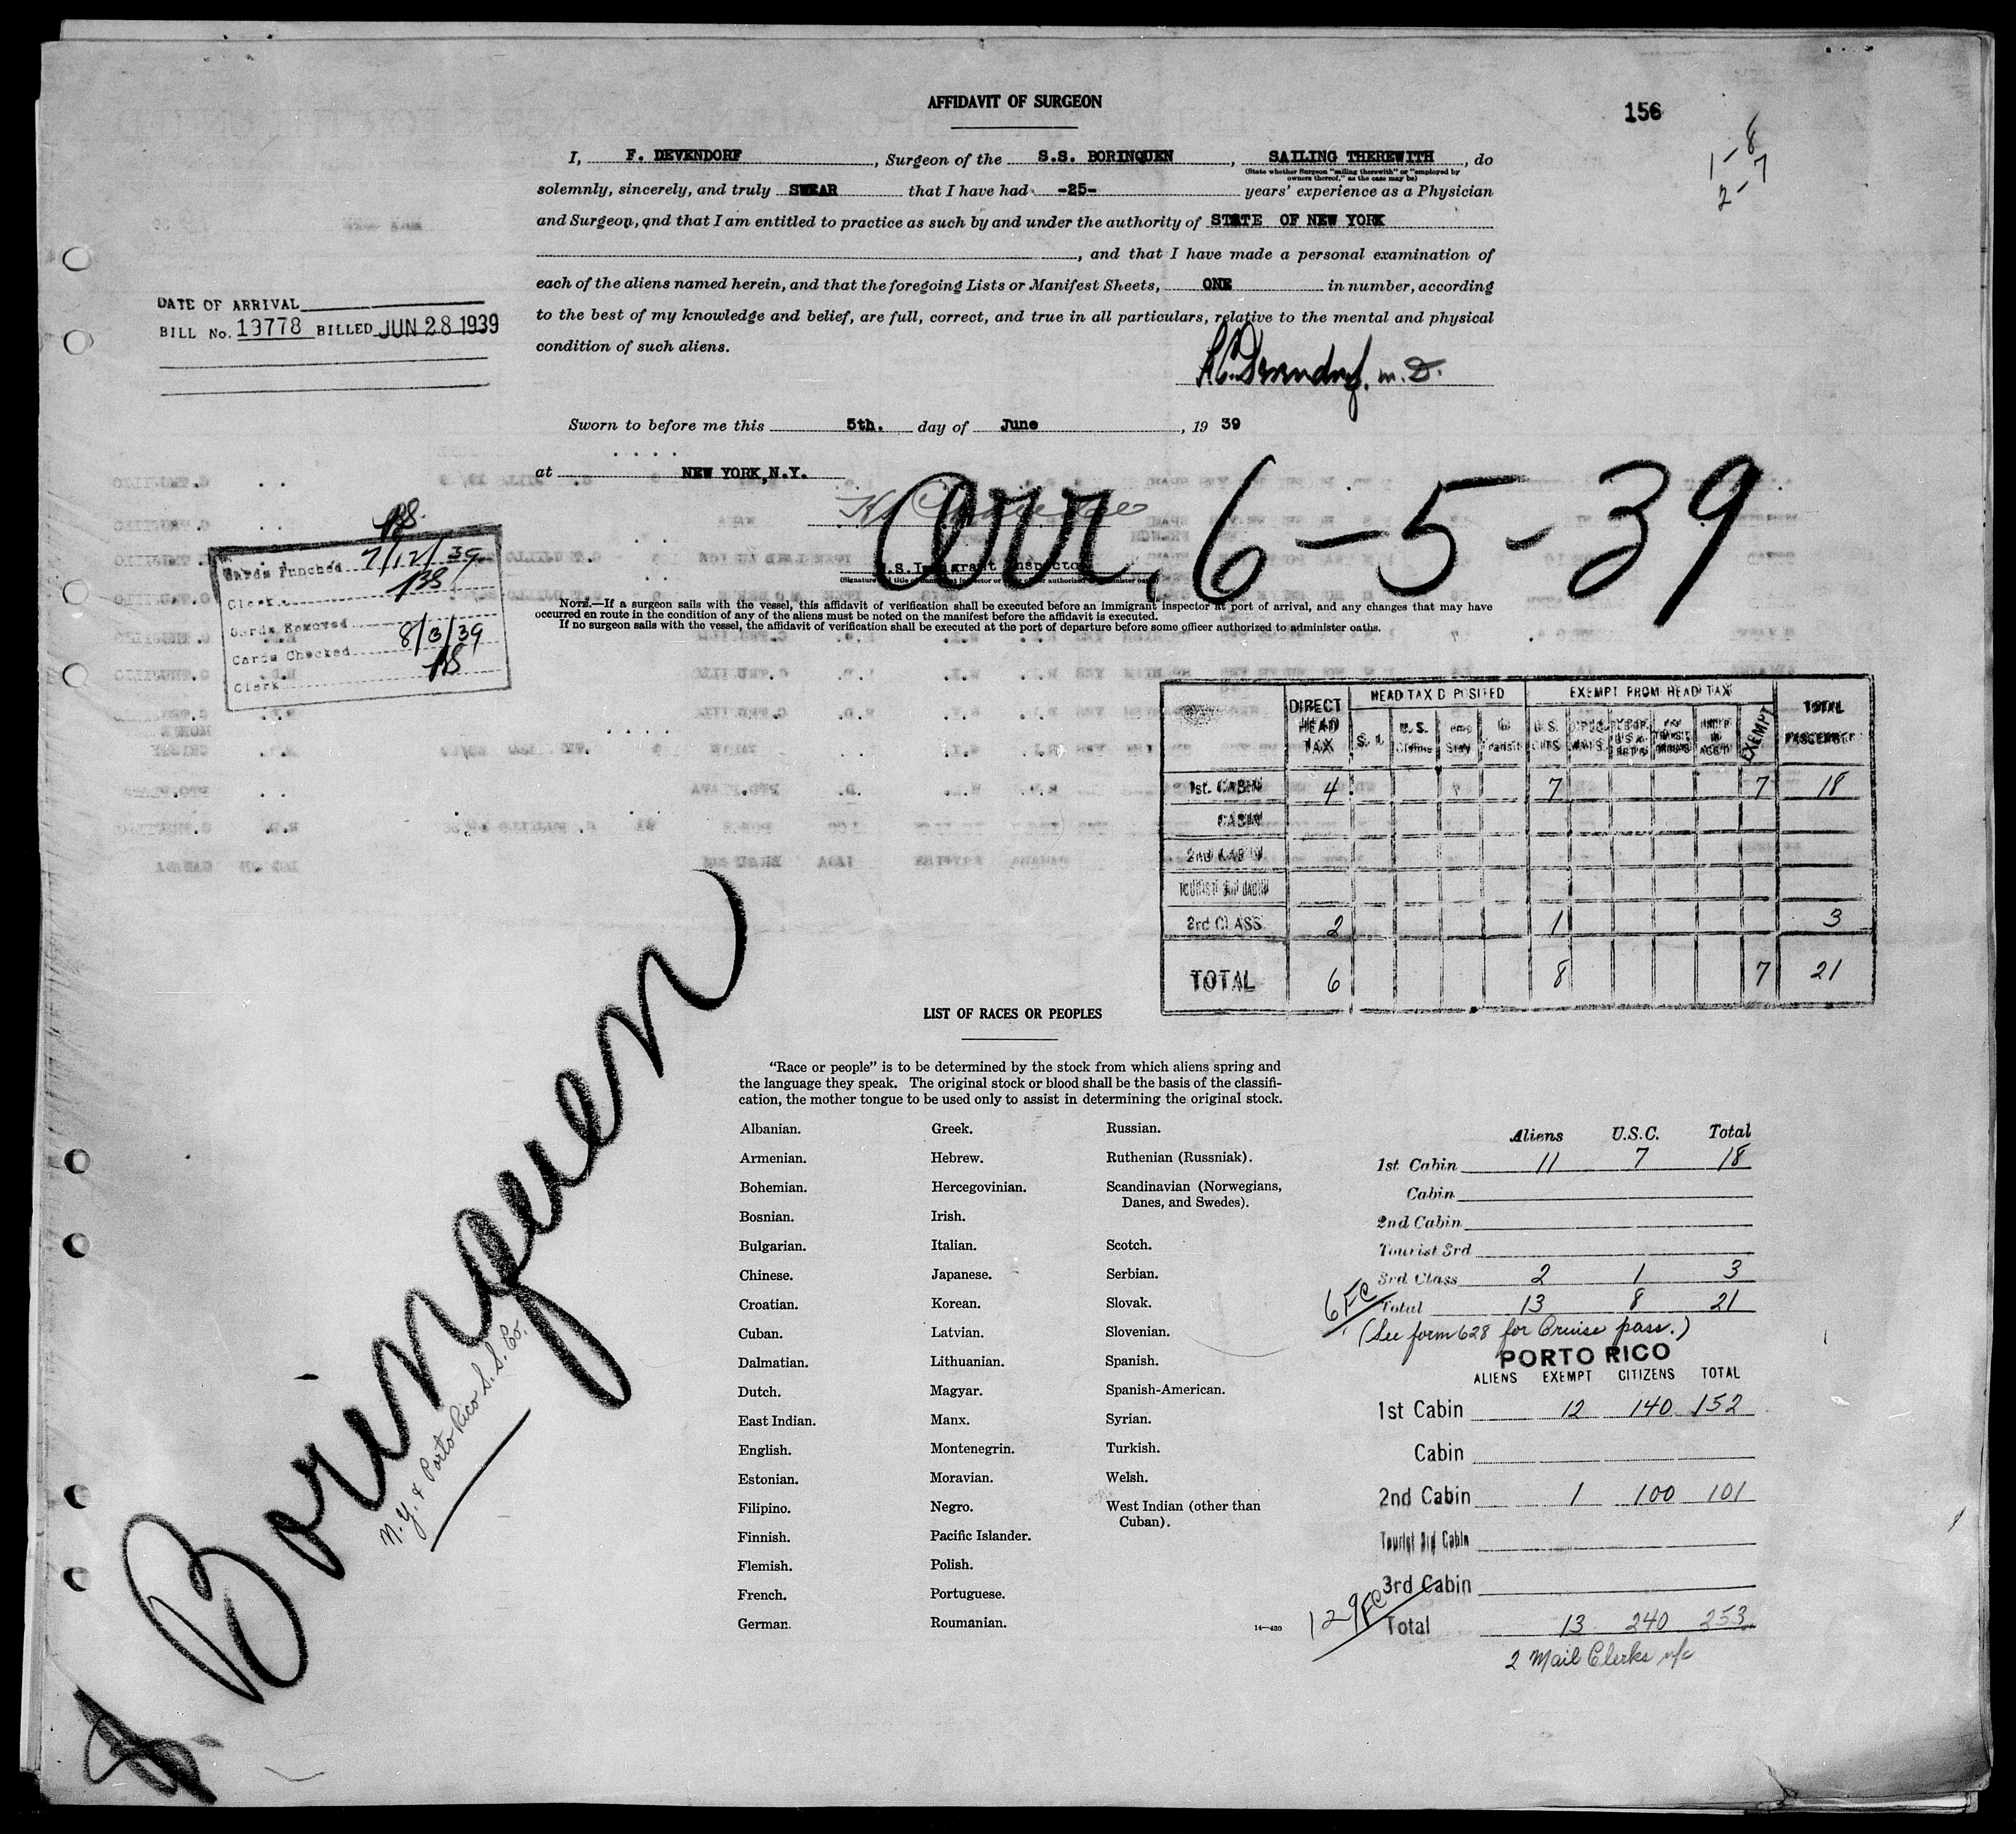 AFFIDAVIT OF SURGEON
156
1 - 8
2 - 7
I, F. DEVENDORF, Surgeon of the S.S. BORINQUEN, SAILING THEREWITH, do
(State whether Surgeon "sailing therewith" or "employed by
owners thereof," as the case may be)
solemnly, sincerely, and truly SWEAR that I have had -25- years' experience as a Physician
and Surgeon, and that I am entitled to practice as such by and under the authority of STATE OF NEW YORK
, and that I have made a personal examination of
each of the aliens named herein, and that the foregoing Lists or Manifest Sheets, ONE in number, according
to the best of my knowledge and belief, are full, correct, and true in all particulars, relative to the mental and physical
condition of such aliens.
Devendorf. M.D.
DATE OF ARRIVAL
BILL No. 19778 BILLED JUN 28 1939
Sworn to before me this 5th. day of June, 19 39
at NEW YORK, N.Y.
arr. 6-5-39
U.S. Immigrant Inspector
NOTE.—If a surgeon sails with the vessel, this affidavit of verification shall be executed before an immigrant inspector at port of arrival, and any changes that may have
occurred en route in the condition of any of the aliens must be noted on the manifest before the affidavit is executed.
If no surgeon sails with the vessel, the affidavit of verification shall be executed at the port of departure before some officer authorized to administer oaths.
Cards Punched 7/12/39
Clerk
Cards Removed
Cards Checked 8/3/39
Clerk
DIRECT HEAD TAX HEAD TAX DEPOSITED EXEMPT FROM HEAD TAX TOTAL PASSENGER
S. I. U.S. Citizens Temp Stay In Transit U.S. CITS. EXEMPT
1st. CABIN 4 7 7 18
CABIN
2nd CABIN
TOURIST 3rd CABIN
3rd CLASS 2 1 3
TOTAL 6 8 7 21
LIST OF RACES OR PEOPLES
"Race or people" is to be determined by the stock from which aliens spring and
the language they speak. The original stock or blood shall be the basis of the classifi-
cation, the mother tongue to be used only to assist in determining the original stock.
Albanian.
Armenian.
Bohemian.
Bosnian.
Bulgarian.
Chinese.
Croatian.
Cuban.
Dalmatian.
Dutch.
East Indian.
English.
Estonian.
Filipino.
Finnish.
Flemish.
French.
German.
Greek.
Hebrew.
Hercegovinian.
Irish.
Italian.
Japanese.
Korean.
Latvian.
Lithuanian.
Magyar.
Manx.
Montenegrin.
Moravian.
Negro.
Pacific Islander.
Polish.
Portuguese.
Roumanian.
Russian.
Ruthenian (Russniak).
Scandinavian (Norwegians,
Danes, and Swedes).
Scotch.
Serbian.
Slovak.
Slovenian.
Spanish.
Spanish-American.
Syrian.
Turkish.
Welsh.
West Indian (other than
Cuban).
14—430
Borinquen
N.Y. & Porto Rico S.S. Co.
Aliens U.S.C. Total
1st Cabin 11 7 18
Cabin
2nd Cabin
Tourist 3rd
3rd Class 2 1 3
6FC Total 13 8 21
(See form 628 for Cruise pass.)
PORTO RICO
ALIENS EXEMPT CITIZENS TOTAL
1st Cabin 12 140 152
Cabin
2nd Cabin 1 100 101
Tourist 3rd Cabin
3rd Cabin
129FC Total 13 240 253
2 Mail Clerks